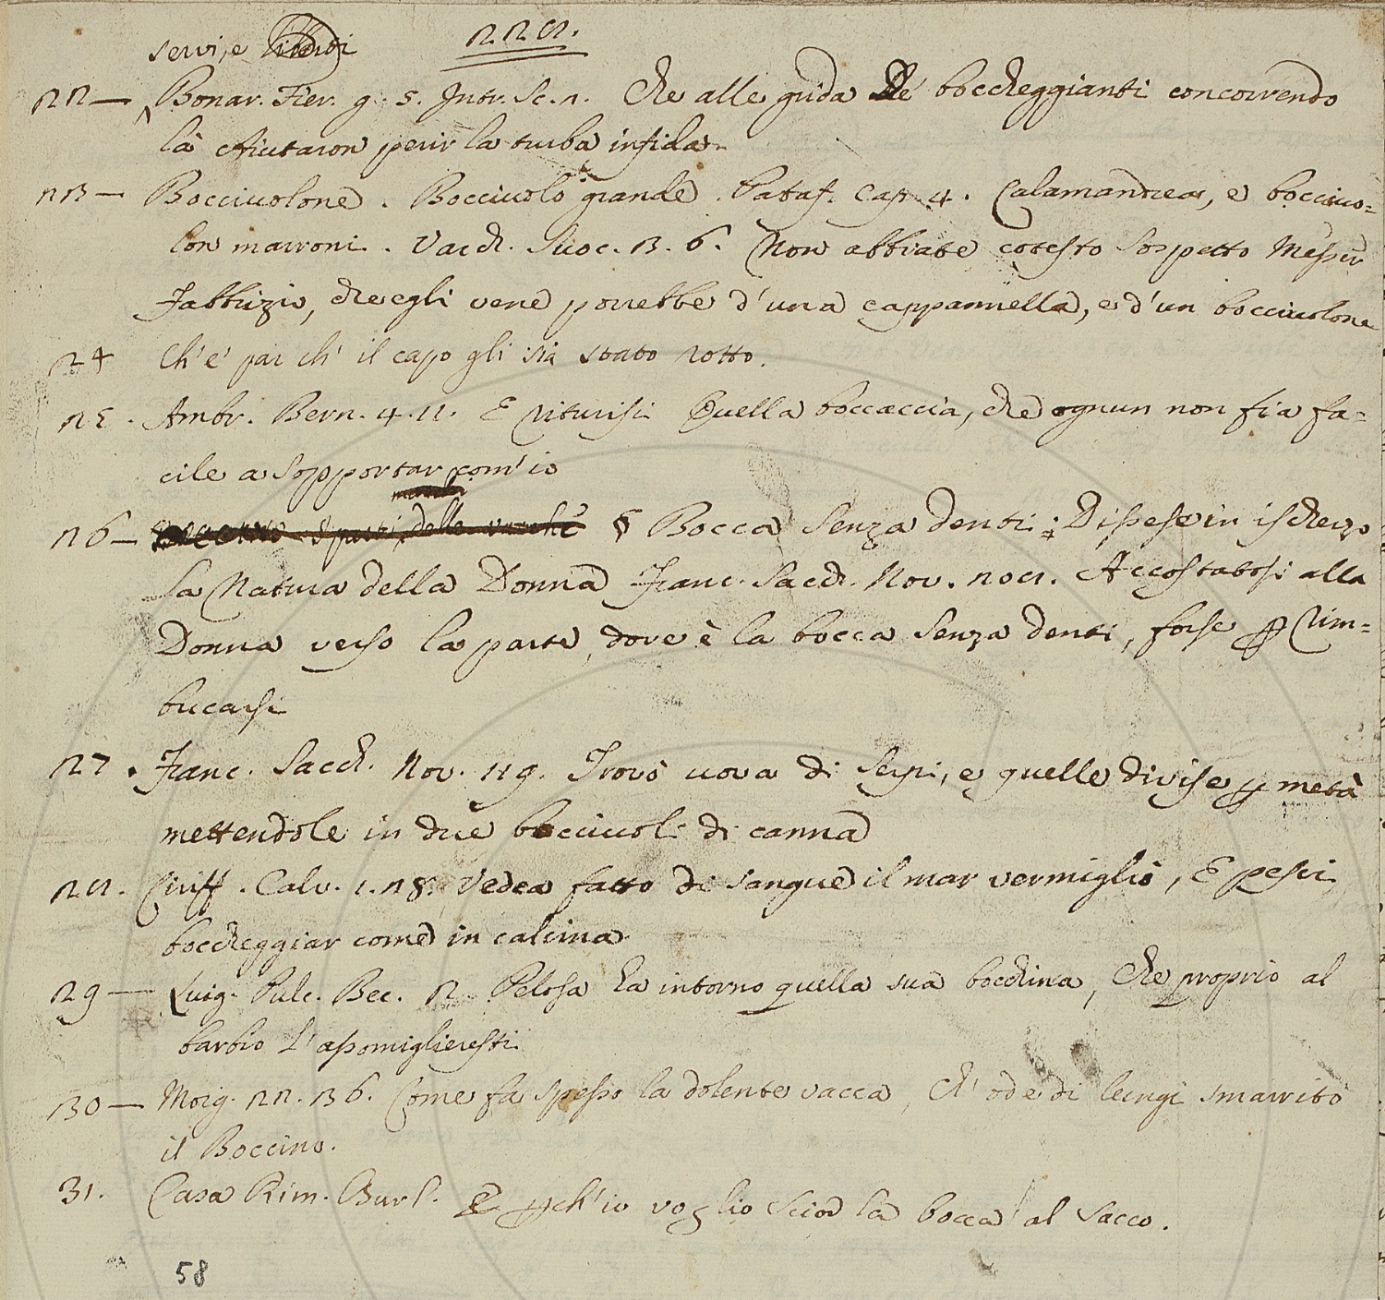 servi, e
228.
22 — Bonar. Fier. g. 5. Intr. Sc. 2. Che alle grida de' boccheggianti concorrendo
là Aiutaron perir la turba infida.
23 — Bocciuolone. Bocciuolo grande. Pataf. Cap. 4. Calamandrea, e bocciuo=
lon marroni. Varch. Suoc. 3. 6. Non abbiate cotesto sospetto Messer
Fabbrizio, che egli vene porrebbe d'una cappannella, e d'un bocciuolone
24 Ch'e' par ch' il capo gli sia stato rotto.
25. Ambr. Bern. 4. 11. E riturisi Quella boccaccia, che ognun non fia fa=
cile a sopportar, com'io
26 — § Bocca senza denti: Dissese in ischerzo
la Natura della Donna Franc. Sacch. Nov. 208. Accostatosi alla
Donna verso la parte, dove è la bocca senza denti, forse p rim=
bucarsi
27. Franc. Sacch. Nov. 219. Trovò uova di serpi, e quelle divise p metà
mettendole in due bocciuoli di canna
28. Ciriff. Calv. 1. 28. Vedea fatto di sangue il mar vermiglio, E pesci
boccheggiar come in calcina
29 — Luig. Pulc. Bec. 2. Pelosa ha intorno quella sua bocchina, Che proprio al
barbio l'assomiglieresti
30 — Morg. 22. 36. Come fa spesso la dolente vacca, Ch' ode di lungi smarrito
il Boccino.
31. Casa Rim. Burl. E pch'io voglio scior la bocca al sacco.
58